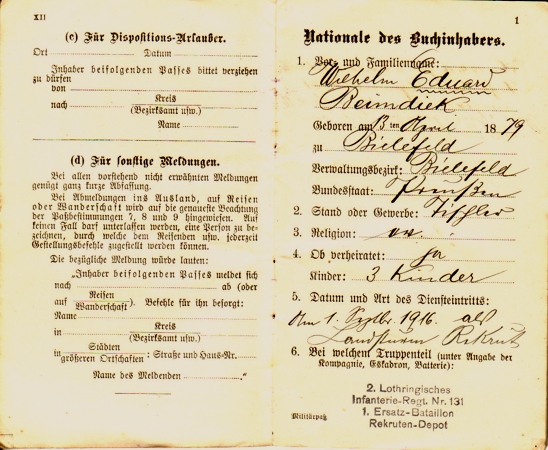 XII
(c) Für Dispositions-Urlauber.
Ort Datum
Inhaber beifolgenden Passes bittet verziehen
zu dürfen
von
nach Kreis
(Bezirksamt usw.)
Name
(d) Für sonstige Meldungen.
Bei allen vorstehend nicht erwähnten Meldungen
genügt ganz kurze Abfassung.
Bei Abmeldungen ins Ausland, auf Reisen
oder Wanderschaft wird auf die genaueste Beachtung
der Paßbestimmungen 7, 8 und 9 hingewiesen. Auf
keinen Fall darf unterlassen werden, eine Person zu be-
zeichnen, durch welche dem Reisenden usw. jederzeit
Gestellungsbefehle zugestellt werden können.
Die bezügliche Meldung würde lauten:
„Inhaber beifolgenden Passes meldet sich
nach ab (oder
auf Reisen
Wanderschaft). Befehle für ihn besorgt:
Name
in Kreis
(Bezirksamt usw.)
in Städten
größeren Ortschaften: Straße und Haus-Nr.
Name des Meldenden ."
1
Nationale des Buchinhabers.
1. Vor- und Familienname:
Wilhelm Eduard
Beimdiek
Geboren am 13ten April 1879
zu Bielefeld
Verwaltungsbezirk: Bielefeld
Bundesstaat: Preußen
2. Stand oder Gewerbe: Tischler
3. Religion: ev.
4. Ob verheiratet: ja
Kinder: 3 Kinder
5. Datum und Art des Diensteintritts:
Am 1. Septbr. 1916 als
Landsturm Rekrut
6. Bei welchem Truppenteil (unter Angabe der
Kompagnie, Eskadron, Batterie):
2. Lothringisches
Infanterie-Regt. Nr. 131
1. Ersatz-Bataillon
Rekruten-Depot
Militärpaß